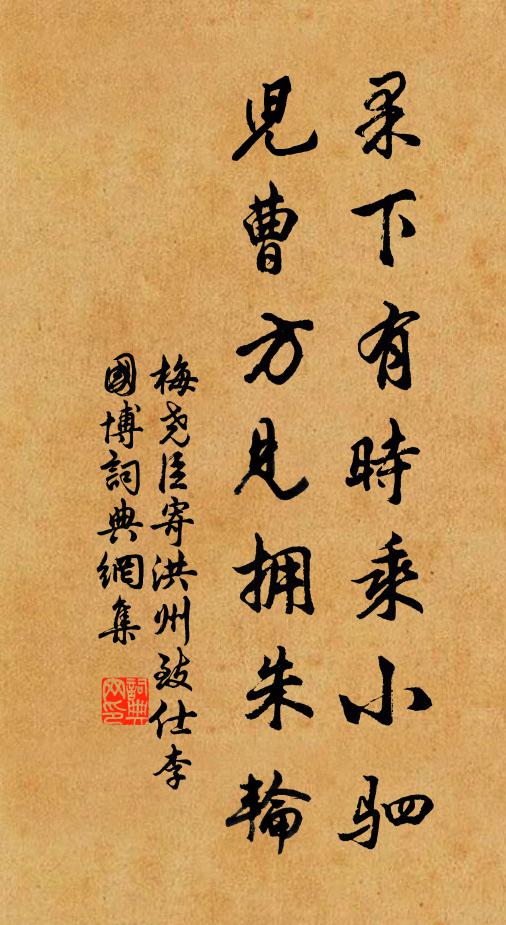 果下有時乘小駟
兒曹方見拥朱輪
梅尧臣寄洪州致仕李
國博詞典網集
詞典
网印